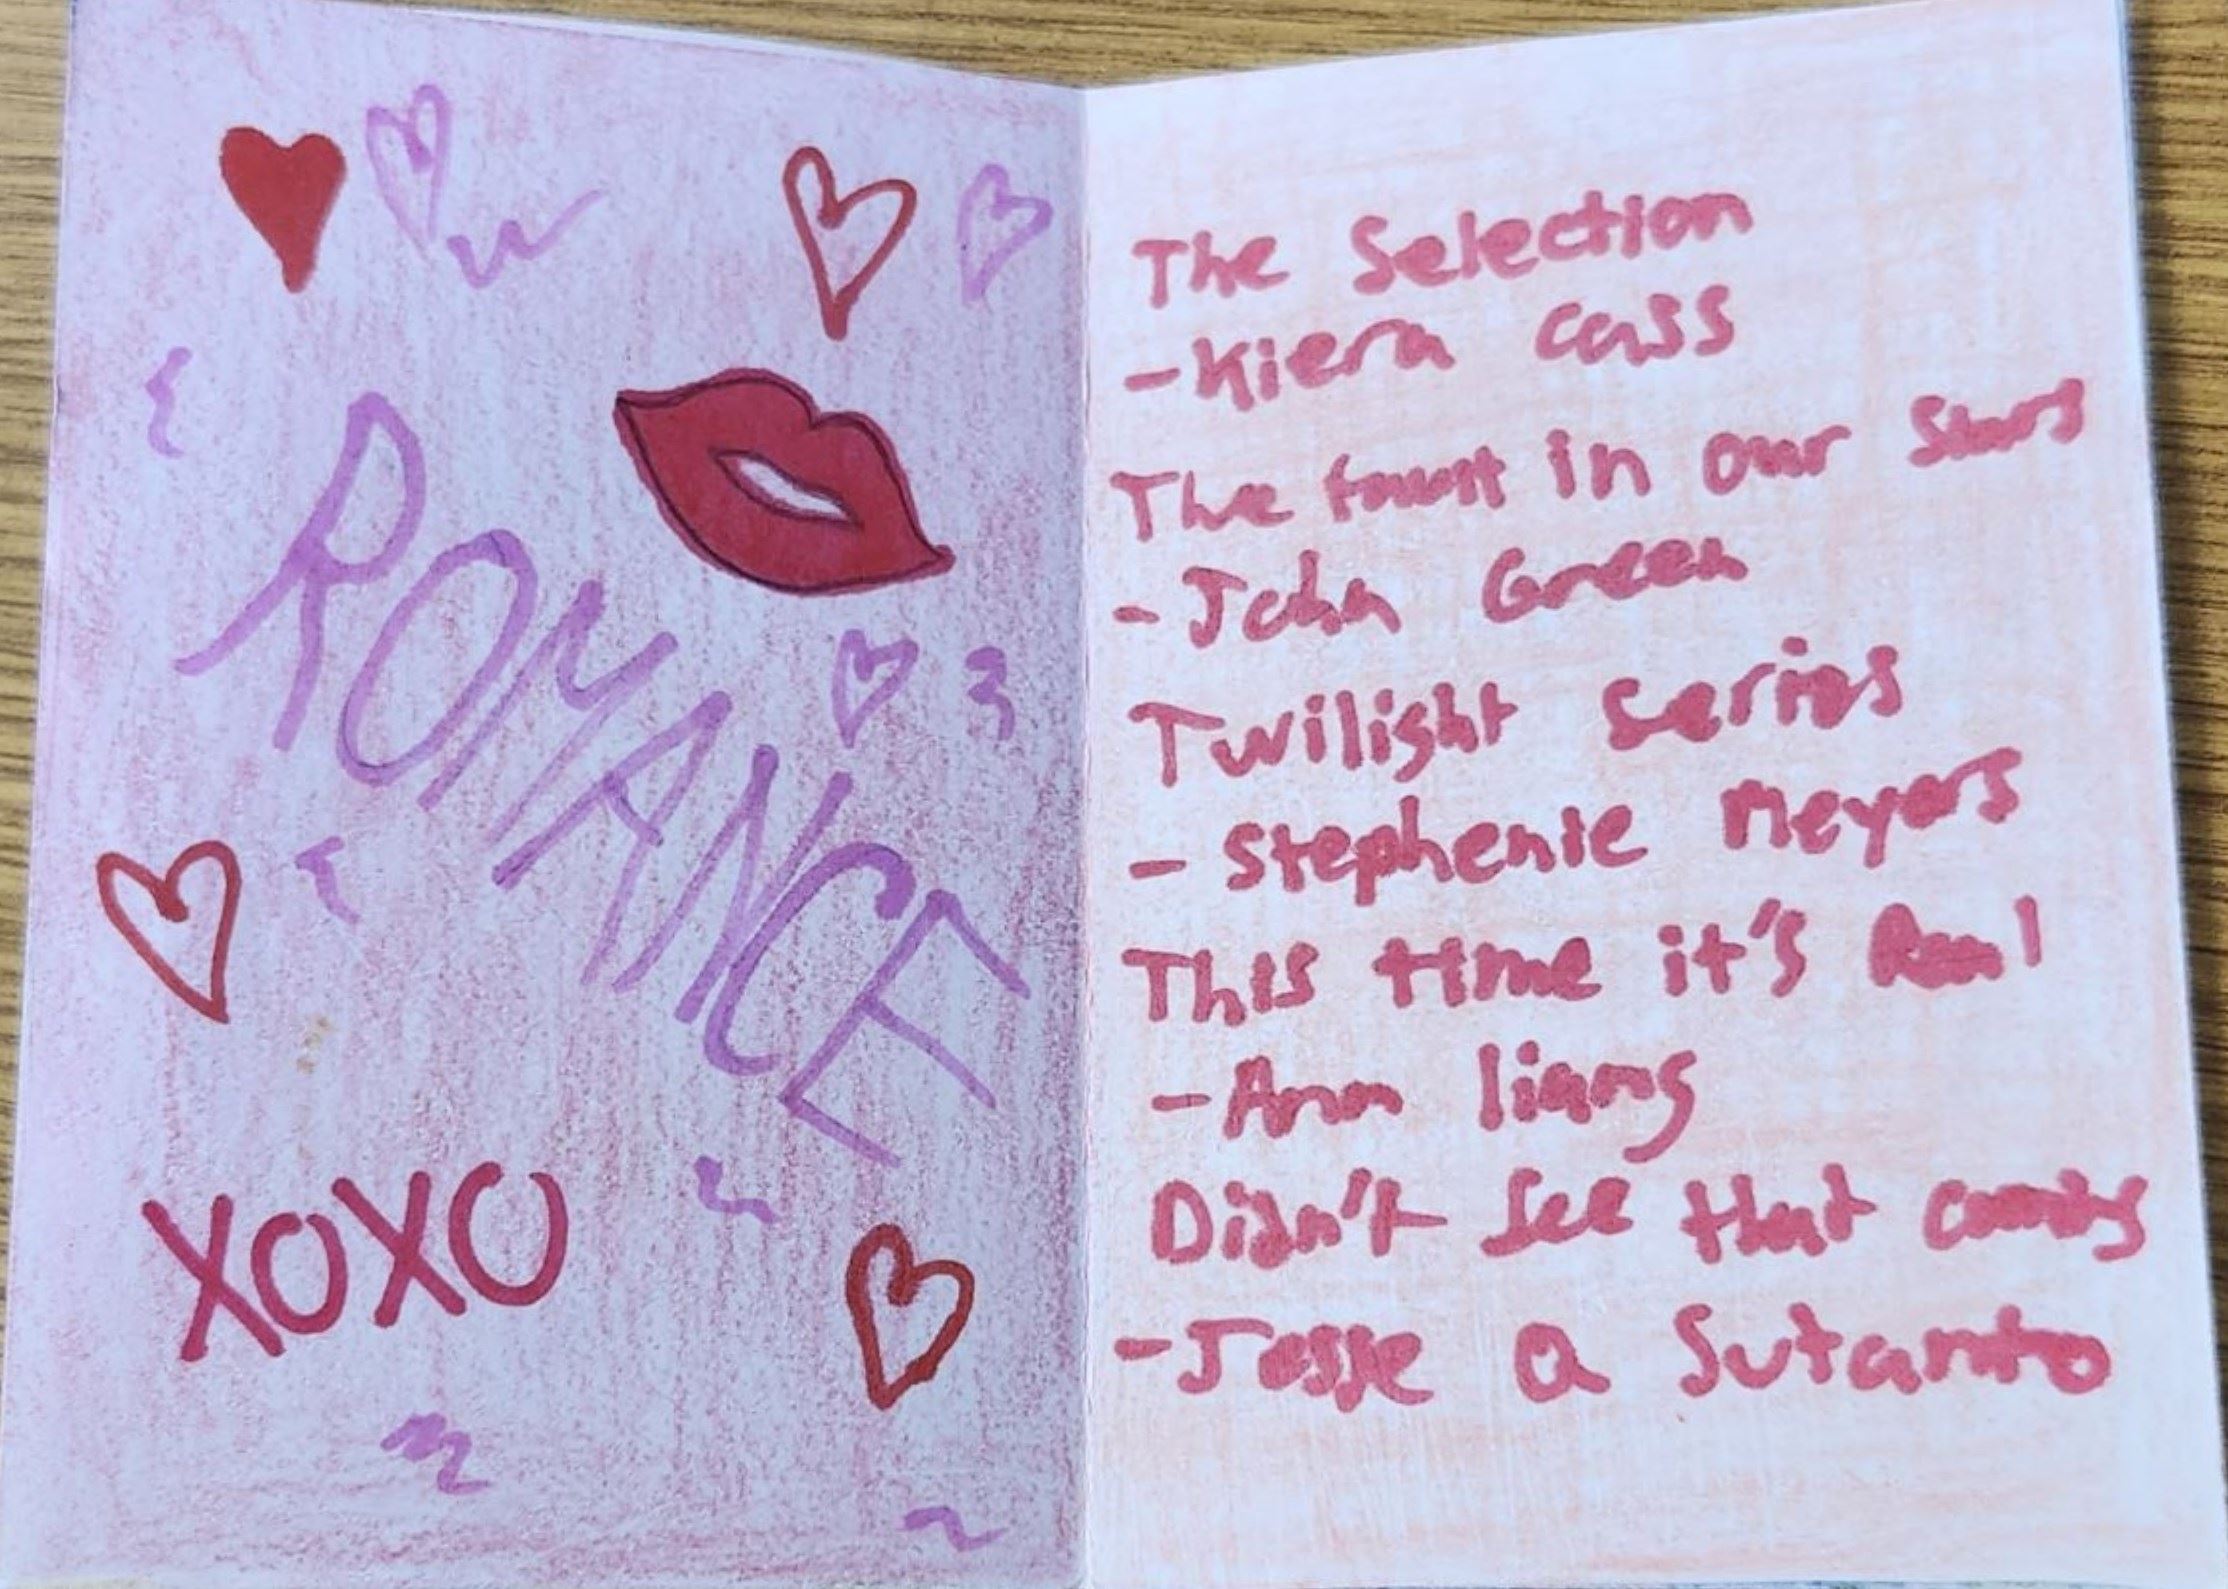 ROMANCE
XOXO
The Selection
- Kiera Cass
The fault in our Stars
- John Green
Twilight series
- Stephenie Meyers
This time it's Real
- Ann liang
Didn't See that coming
- Jesse a Sutanto